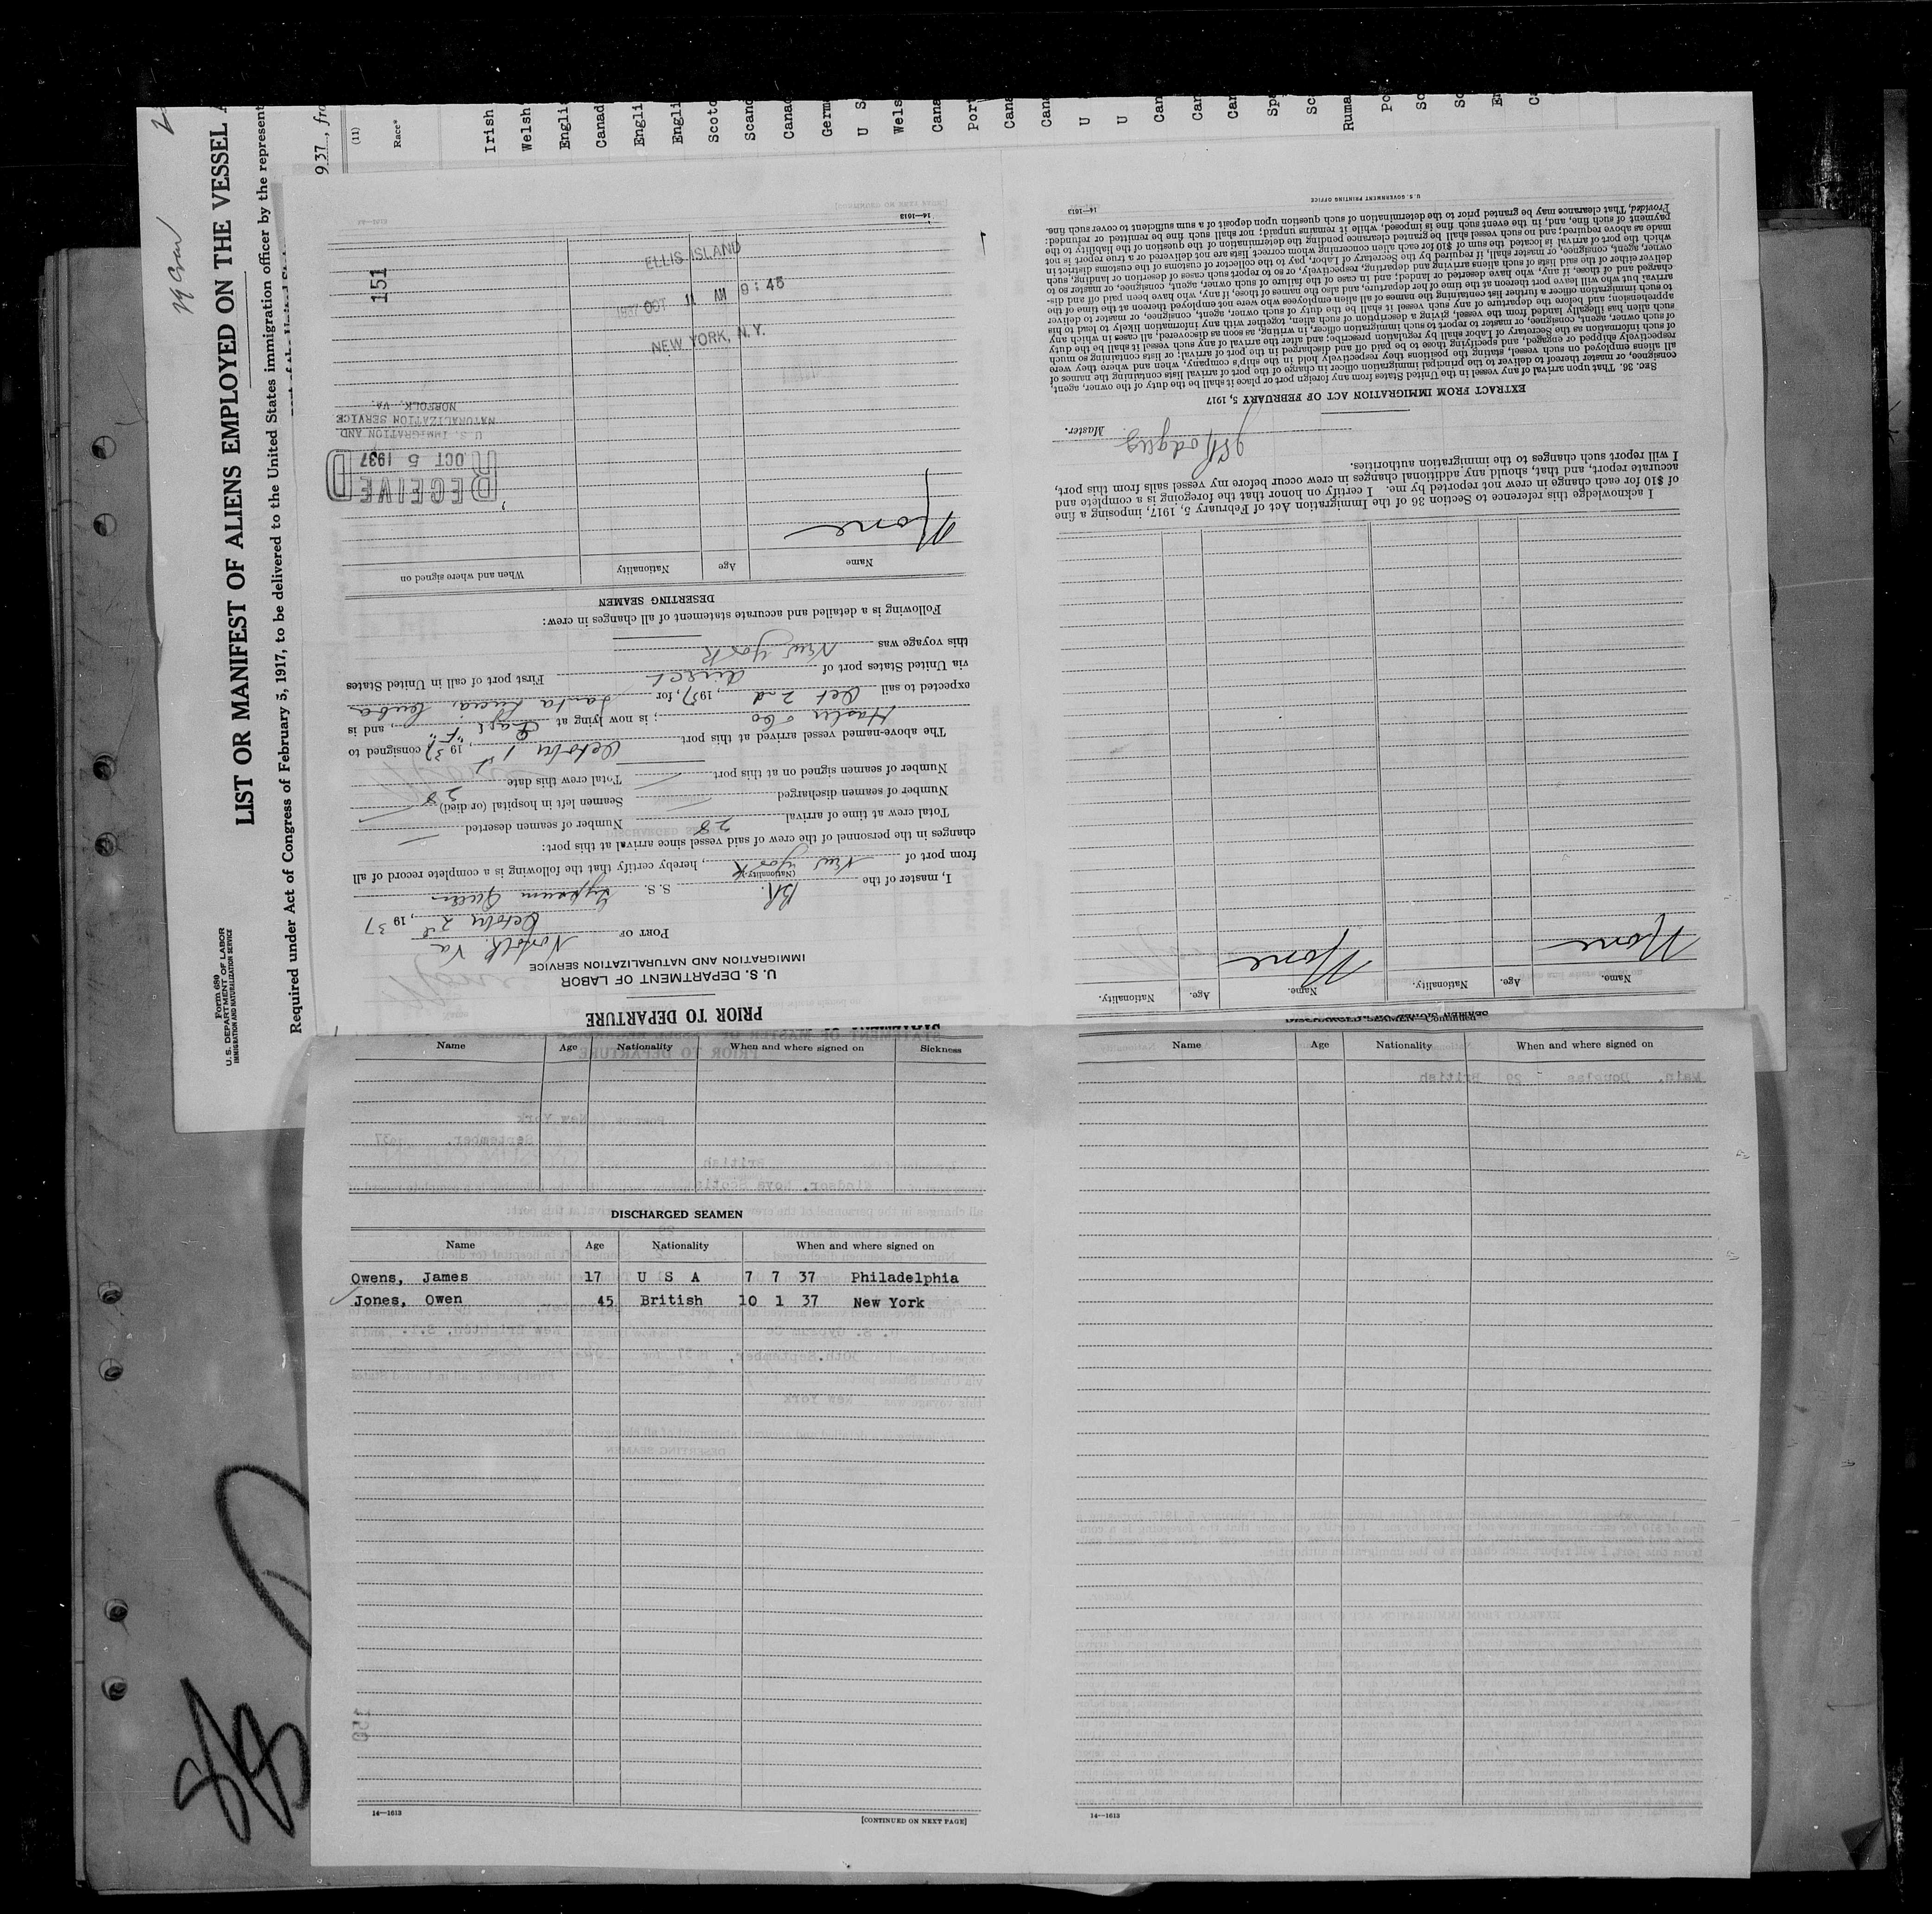 LIST OR MANIFEST OF ALIENS EMPLOYED ON THE VESSEL
Required under Act of Congress of February 5, 1917, to be delivered to the United States immigration officer by the represent
Form 689
U. S. DEPARTMENT OF LABOR
IMMIGRATION AND NATURALIZATION SERVICE
937, fro
(11)
Race*
Irish
Welsh
Engli
Canad
Engli
Engli
Scotc
Scand
Canad
Germ
U S
Wels
Cana
Port
Cana
Cana
U
U
Can
Can
Car
Spa
Sc
Ruma
Po
Sc
So
En
Ca
PRIOR TO DEPARTURE
U. S. DEPARTMENT OF LABOR
IMMIGRATION AND NATURALIZATION SERVICE
PORT OF Norfolk. Va
October 2nd, 1937
I, master of the Br. S. S. Gypsum Queen
(Nationality.)
from port of New York, hereby certify that the following is a complete record of all
changes in the personnel of the crew of said vessel since arrival at this port:
Total crew at time of arrival 28 Number of seamen deserted
Number of seamen discharged Seamen left in hospital (or died)
Number of seamen signed on at this port Total crew this date 28
The above-named vessel arrived at this port October 1st, 1937, consigned to
Hasler & Co; is now lying at "F", and is
expected to sail Oct 2nd, 1937, for Santa Lucia, Cuba
via United States port of direct First port of call in United States
this voyage was New York
Following is a detailed and accurate statement of all changes in crew:
DESERTING SEAMEN
Name Age Nationality When and where signed on
None
RECEIVED
OCT 5 1937
U. S. IMMIGRATION AND
NATURALIZATION SERVICE
NORFOLK, VA.
ELLIS ISLAND
1937 OCT 11 AM 9:45
NEW YORK, N.Y.
151
14—1613
Name. Age. Nationality. Name. Age. Nationality.
None None
I acknowledge this reference to Section 36 of the Immigration Act of February 5, 1917, imposing a fine
of $10 for each change in crew not reported by me. I certify on honor that the foregoing is a complete and
accurate report, and that, should any additional changes in crew occur before my vessel sails from this port,
I will report such changes to the immigration authorities.
Master.
EXTRACT FROM IMMIGRATION ACT OF FEBRUARY 5, 1917
SEC. 36. That upon arrival of any vessel in the United States from any foreign port or place it shall be the duty of the owner, agent,
consignee, or master thereof to deliver to the principal immigration officer in charge of the port of arrival lists containing the names of
all aliens employed on such vessel, stating the positions they respectively hold in the ship's company, when and where they were
respectively shipped or engaged, and specifying those to be paid off and discharged in the port of arrival; or lists containing so much
of such information as the Secretary of Labor shall by regulation prescribe; and after the arrival of any such vessel it shall be the duty
of such owner, agent, consignee, or master to report to such immigration officer, in writing, as soon as discovered, all cases in which any
such alien has illegally landed from the vessel, giving a description of such alien, together with any information likely to lead to his
apprehension; and before the departure of any such vessel it shall be the duty of such owner, agent, consignee, or master to deliver
to such immigration officer a further list containing the names of all alien employees who were not employed thereon at the time of the
arrival but who will leave port thereon at the time of her departure, and also the names of those, if any, who have been paid off and dis-
charged and of those, if any, who have deserted or landed; and in case of the failure of such owner, agent, consignee, or master to
deliver either of the said lists of such aliens arriving and departing, respectively, or so to report such cases of desertion or landing, such
owner, agent, consignee, or master, shall, if required by the Secretary of Labor, pay to the collector of customs of the customs district in
which the port of arrival is located the sum of $10 for each alien concerning whom correct lists are not delivered or a true report is not
made as above required; and no such vessel shall be granted clearance pending the determination of the question of the liability to the
payment of such fine, and, in the event such fine is imposed, while it remains unpaid; nor shall such fine be remitted or refunded:
Provided, That clearance may be granted prior to the determination of such question upon deposit of a sum sufficient to cover such fine.
14—1613
U. S. GOVERNMENT PRINTING OFFICE
Name Age Nationality When and where signed on Sickness
DISCHARGED SEAMEN
Name Age Nationality When and where signed on
Owens, James 17 U S A 7 7 37 Philadelphia
Jones, Owen 45 British 10 1 37 New York
14—1613
[CONTINUED ON NEXT PAGE]
Name Age Nationality When and where signed on
14—1613